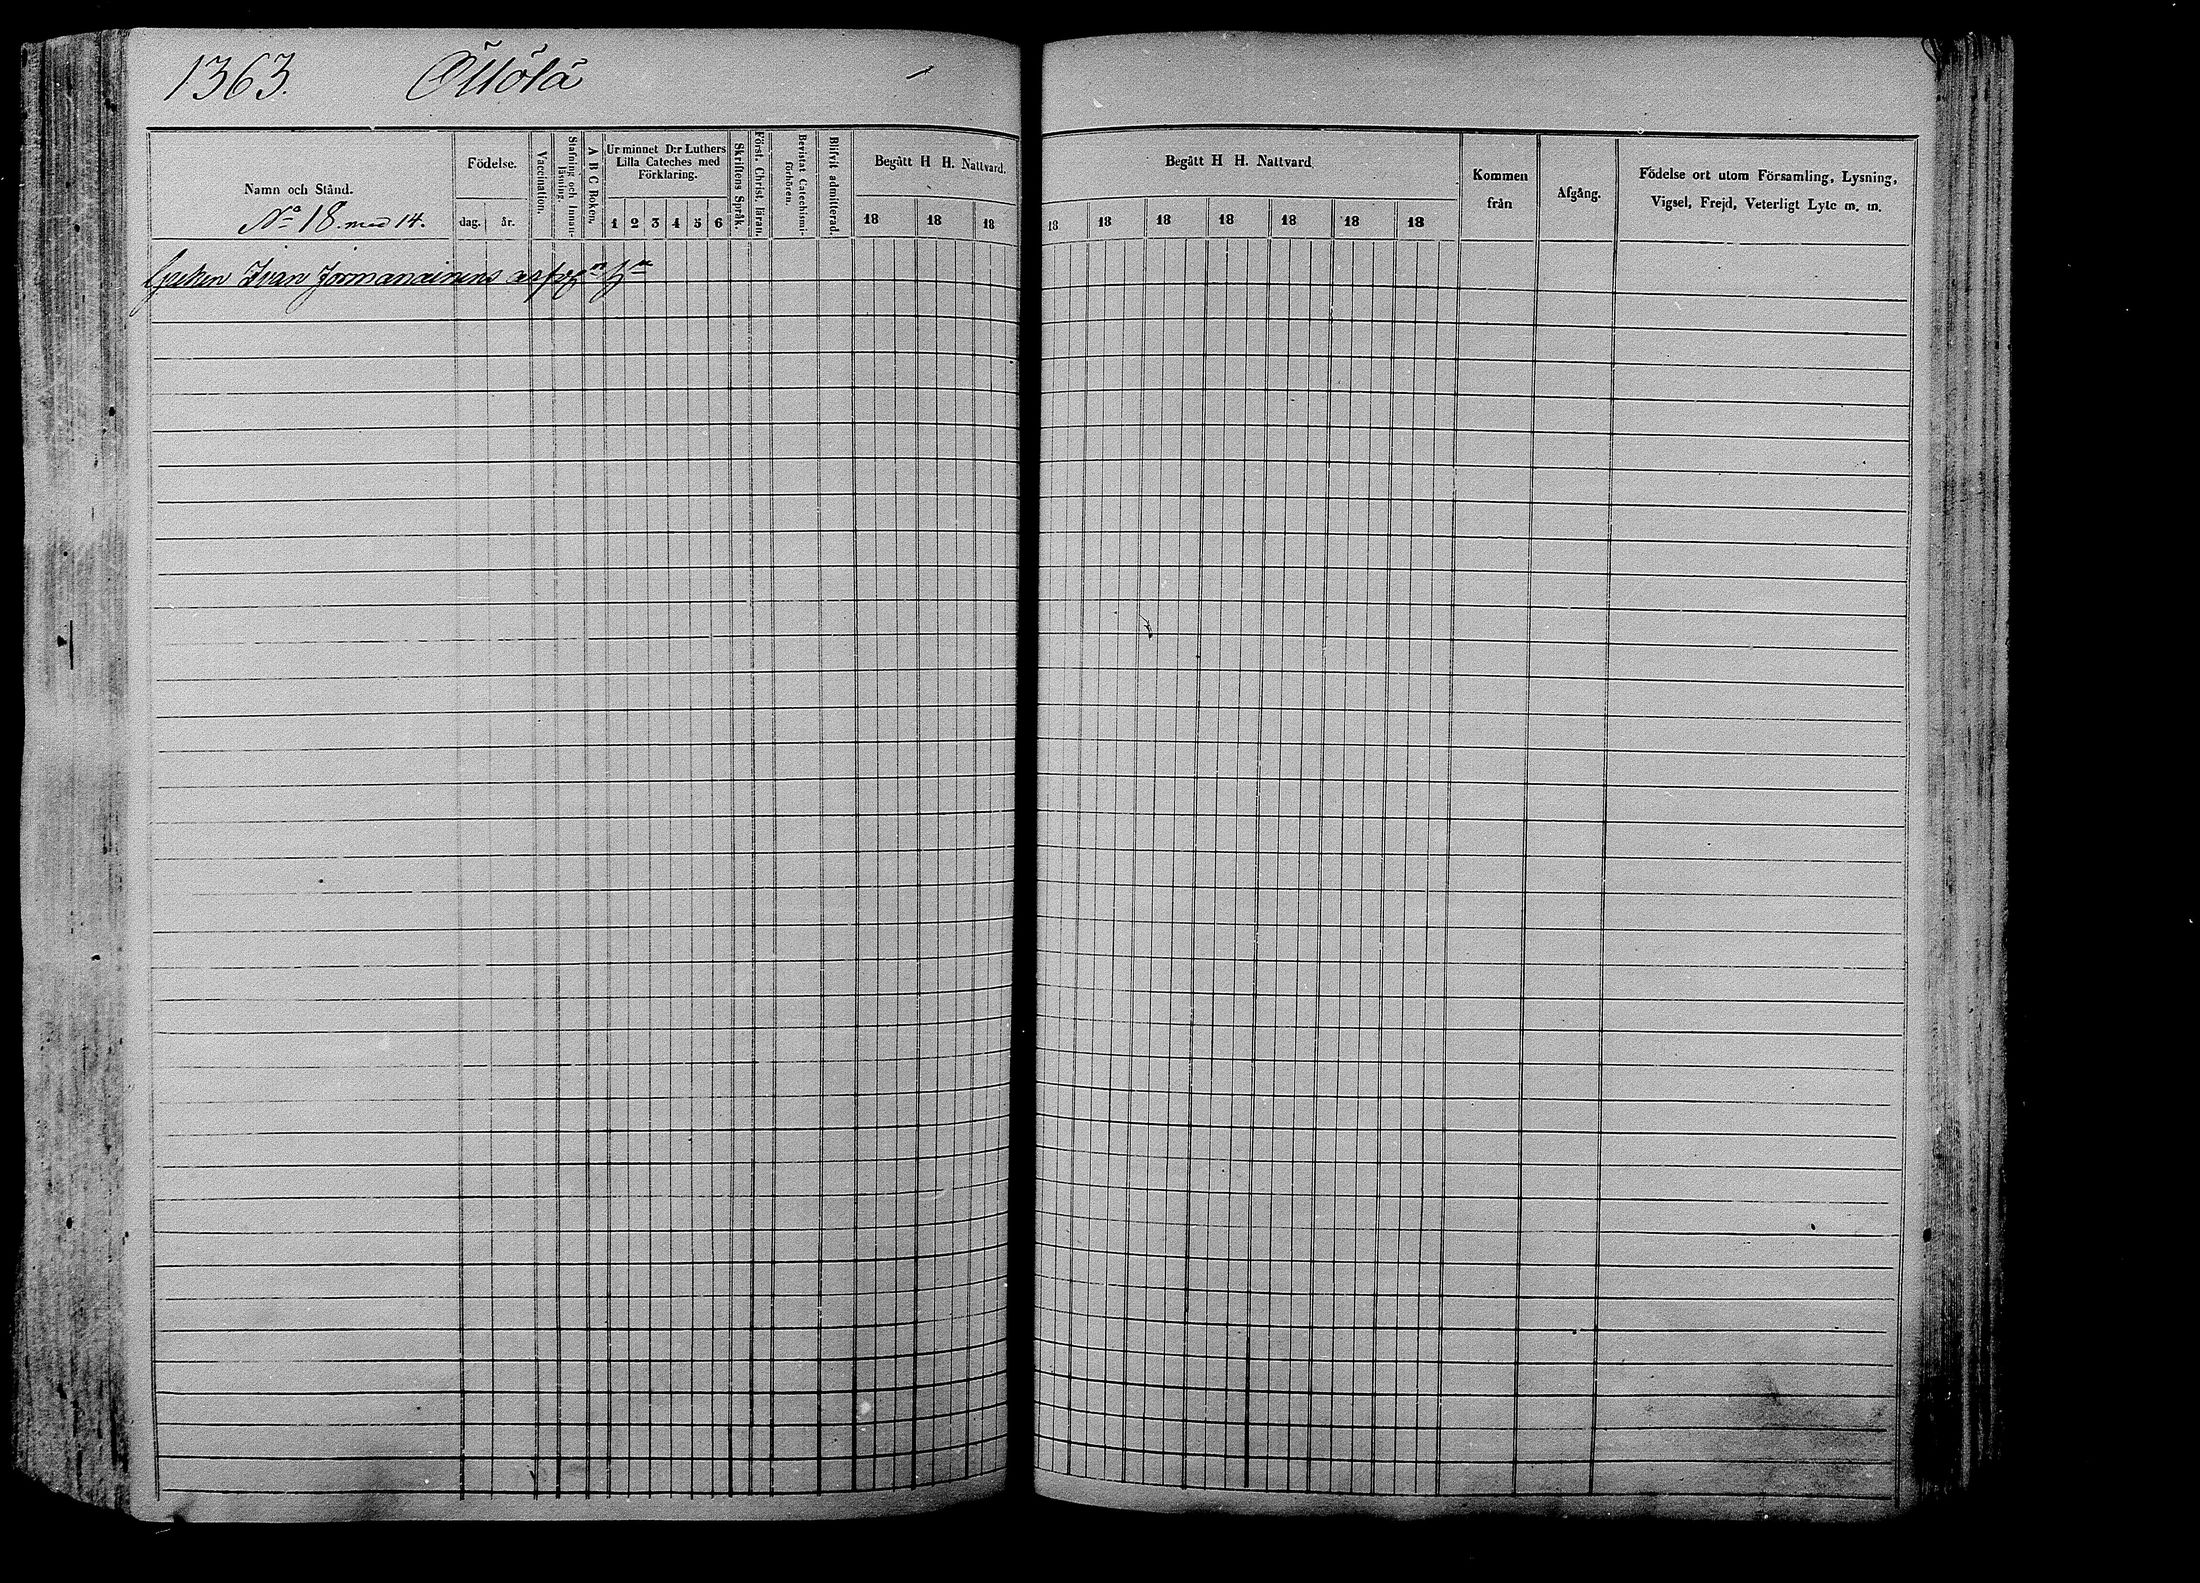 1363. Öllölä
Namn och Stånd.
No 18. med 14.
Födelse.
dag. år.
Vaccination.
Stafning och Innan-
läsning.
A B C Boken.
Ur minnet D:r Luthers
Lilla Cateches med
Förklaring.
1 2 3 4 5 6
Skriftens Språk.
Först. Christ. läran.
Bevistat Catechismi-
förhören.
Blifvit admitterad.
Begått H H. Nattvard.
18 18 18
Greken Ivan Jormanainens
Begått H H. Nattvard
18 18 18 18 18 18 18
Kommen
från
Afgång.
Födelse ort utom Församling, Lysning,
Vigsel, Frejd, Veterligt Lyte m. m.